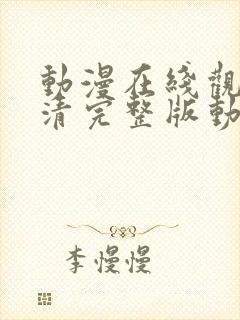 動漫在綫觀
清完整版動
李慢慢